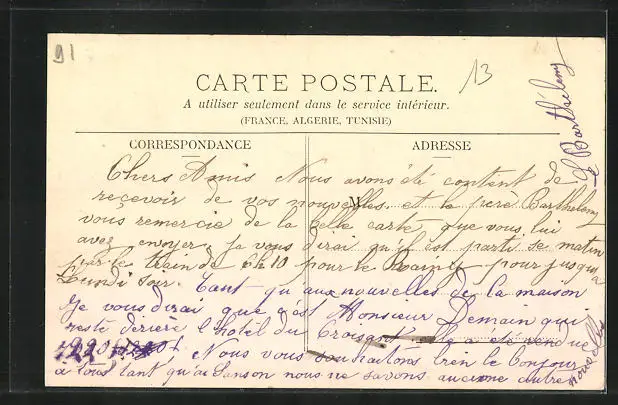 91
13
CARTE POSTALE.
A utiliser seulement dans le service intérieur.
(FRANCE, ALGERIE, TUNISIE)
CORRESPONDANCE
ADRESSE
M
Chers Amis Nous avons été content de
recevoir de vos nouvelles. et le frère Barthelemy
vous remercie de la belle carte que vous lui
avez envoyer Je vous dirai qu'il est parti se matin
par le train de 6h10 pour le Rainsy pour jusqu'a
Lundi soir. Tant qu'aux nouvelles de la maison
Je vous dirai que c'est Monsieur Demain qui
reste deriere l'hotel du Croisant elle a été vendue
Nous vous souhaitons bien le bonjour
a tous tant qu'a Sanson nous ne savons aucune autre
nouvelle
Barthélemy